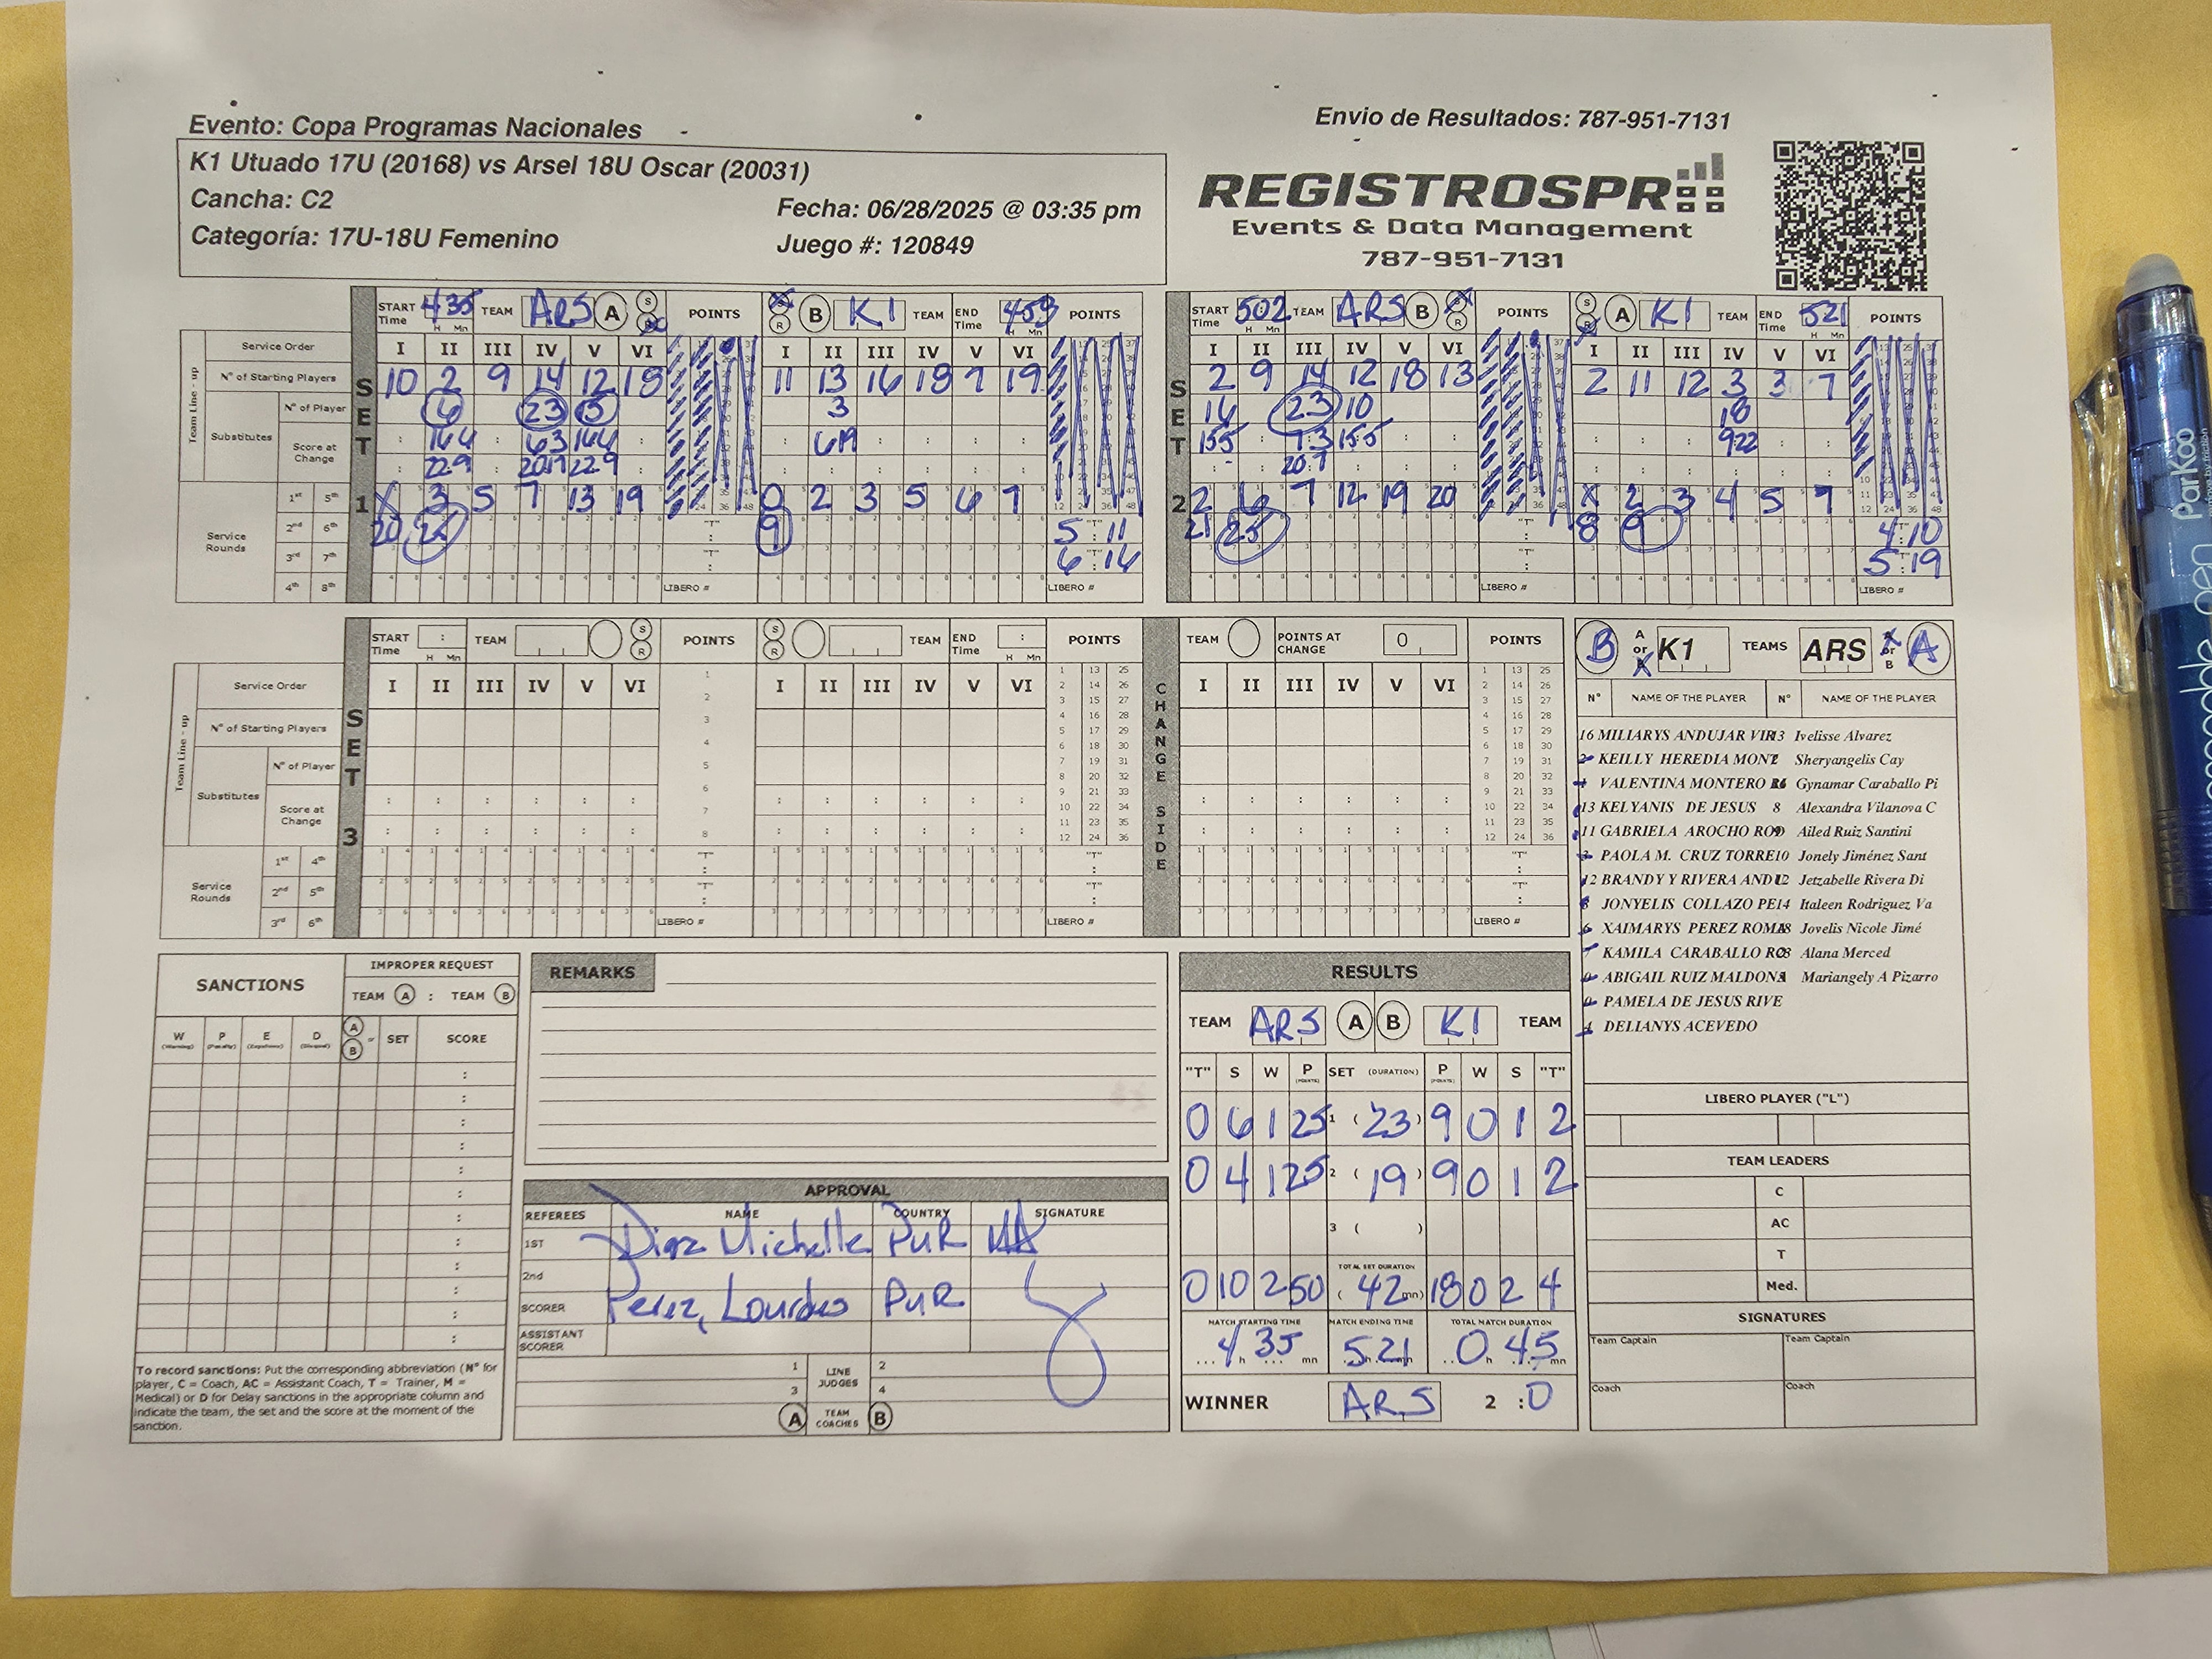 Evento: Copa Programas Nacionales
Envio de Resultados: 787-951-7131
K1 Utuado 17U (20168) vs Arsel 18U Oscar (20031)
Cancha: C2
Fecha: 06/28/2025 @ 03:35 pm
Categoría: 17U-18U Femenino
Juego #: 120849
REGISTROSPR
Events & Data Management
787-951-7131
START Time 435 TEAM ARS A S R POINTS S R B K1 TEAM END Time 459 POINTS
START Time 502 TEAM ARS B S R POINTS S R A K1 TEAM END Time 521 POINTS
Team Line - up
Service Order I II III IV V VI I II III IV V VI I II III IV V VI I II III IV V VI
N° of Starting Players 10 2 9 14 12 18 11 13 16 18 7 19 2 9 14 12 18 13 2 11 12 3 3 7
Substitutes N° of Player 6 23 3 16 23 10 18
Score at Change 164 63 164 619 155 7:3 155 922
229 2017 229 20:7
SET 1
SET 2
Service Rounds
1st 5th X 3 5 7 13 19 0 2 3 5 6 7 2 6 7 12 19 20 X 2 3 4 5 7
2nd 6th 20 25 9 "T" 5:11 21 25 8 9 "T" 4:10
3rd 7th "T" 6:16 "T" 5:19
4th 8th LIBERO # LIBERO # LIBERO # LIBERO #
START Time : TEAM S R POINTS S R TEAM END Time : POINTS
H Mn H Mn
CHANGE SIDE
TEAM POINTS AT CHANGE 0 POINTS
B A or B K1 TEAMS ARS A or B A
Team Line - up
Service Order I II III IV V VI I II III IV V VI I II III IV V VI
N° of Starting Players
Substitutes N° of Player
Score at Change
SET 3
Service Rounds
1st 4th
2nd 5th
3rd 6th
LIBERO # LIBERO # LIBERO #
N° NAME OF THE PLAYER N° NAME OF THE PLAYER
16 MILIARYS ANDUJAR VIR 13 Ivelisse Alvarez
KEILLY HEREDIA MONT Sheryangelis Cay
VALENTINA MONTERO Gynamar Caraballo Pi
13 KELYANIS DE JESUS 8 Alexandra Vilanova C
11 GABRIELA AROCHO Ailed Ruiz Santini
PAOLA M. CRUZ TORRE 10 Jonely Jiménez Sant
12 BRANDY Y RIVERA AND 12 Jetzabelle Rivera Di
JONYELIS COLLAZO PE 14 Italeen Rodriguez Va
XAIMARYS PEREZ ROM 18 Jovelis Nicole Jimé
KAMILA CARABALLO Alana Merced
ABIGAIL RUIZ MALDON Mariangely A Pizarro
PAMELA DE JESUS RIVE
DELIANYS ACEVEDO
LIBERO PLAYER ("L")
TEAM LEADERS
C
AC
T
Med.
SIGNATURES
Team Captain Team Captain
Coach Coach
SANCTIONS
IMPROPER REQUEST
TEAM A : TEAM B
W P E D A or B SET SCORE
To record sanctions: Put the corresponding abbreviation (N° for
player, C = Coach, AC = Assistant Coach, T = Trainer, M =
Medical) or D for Delay sanctions in the appropriate column and
indicate the team, the set and the score at the moment of the
sanction.
REMARKS
APPROVAL
REFEREES NAME COUNTRY SIGNATURE
1ST Diaz Michelle PUR
2nd
SCORER Perez, Lourdes PUR
ASSISTANT SCORER
1 LINE JUDGES 2
3 4
A TEAM COACHES B
RESULTS
TEAM ARS A B K1 TEAM
"T" S W P (POINTS) SET (DURATION) P (POINTS) W S "T"
0 6 1 25 1 (23) 9 0 1 2
0 4 1 25 2 (19) 9 0 1 2
3 ( )
TOTAL SET DURATION
0 10 2 50 (42 mn) 18 0 2 4
MATCH STARTING TIME MATCH ENDING TIME TOTAL MATCH DURATION
4 h 35 mn 521 0 h 45 mn
WINNER ARS 2 :0
ParKoo